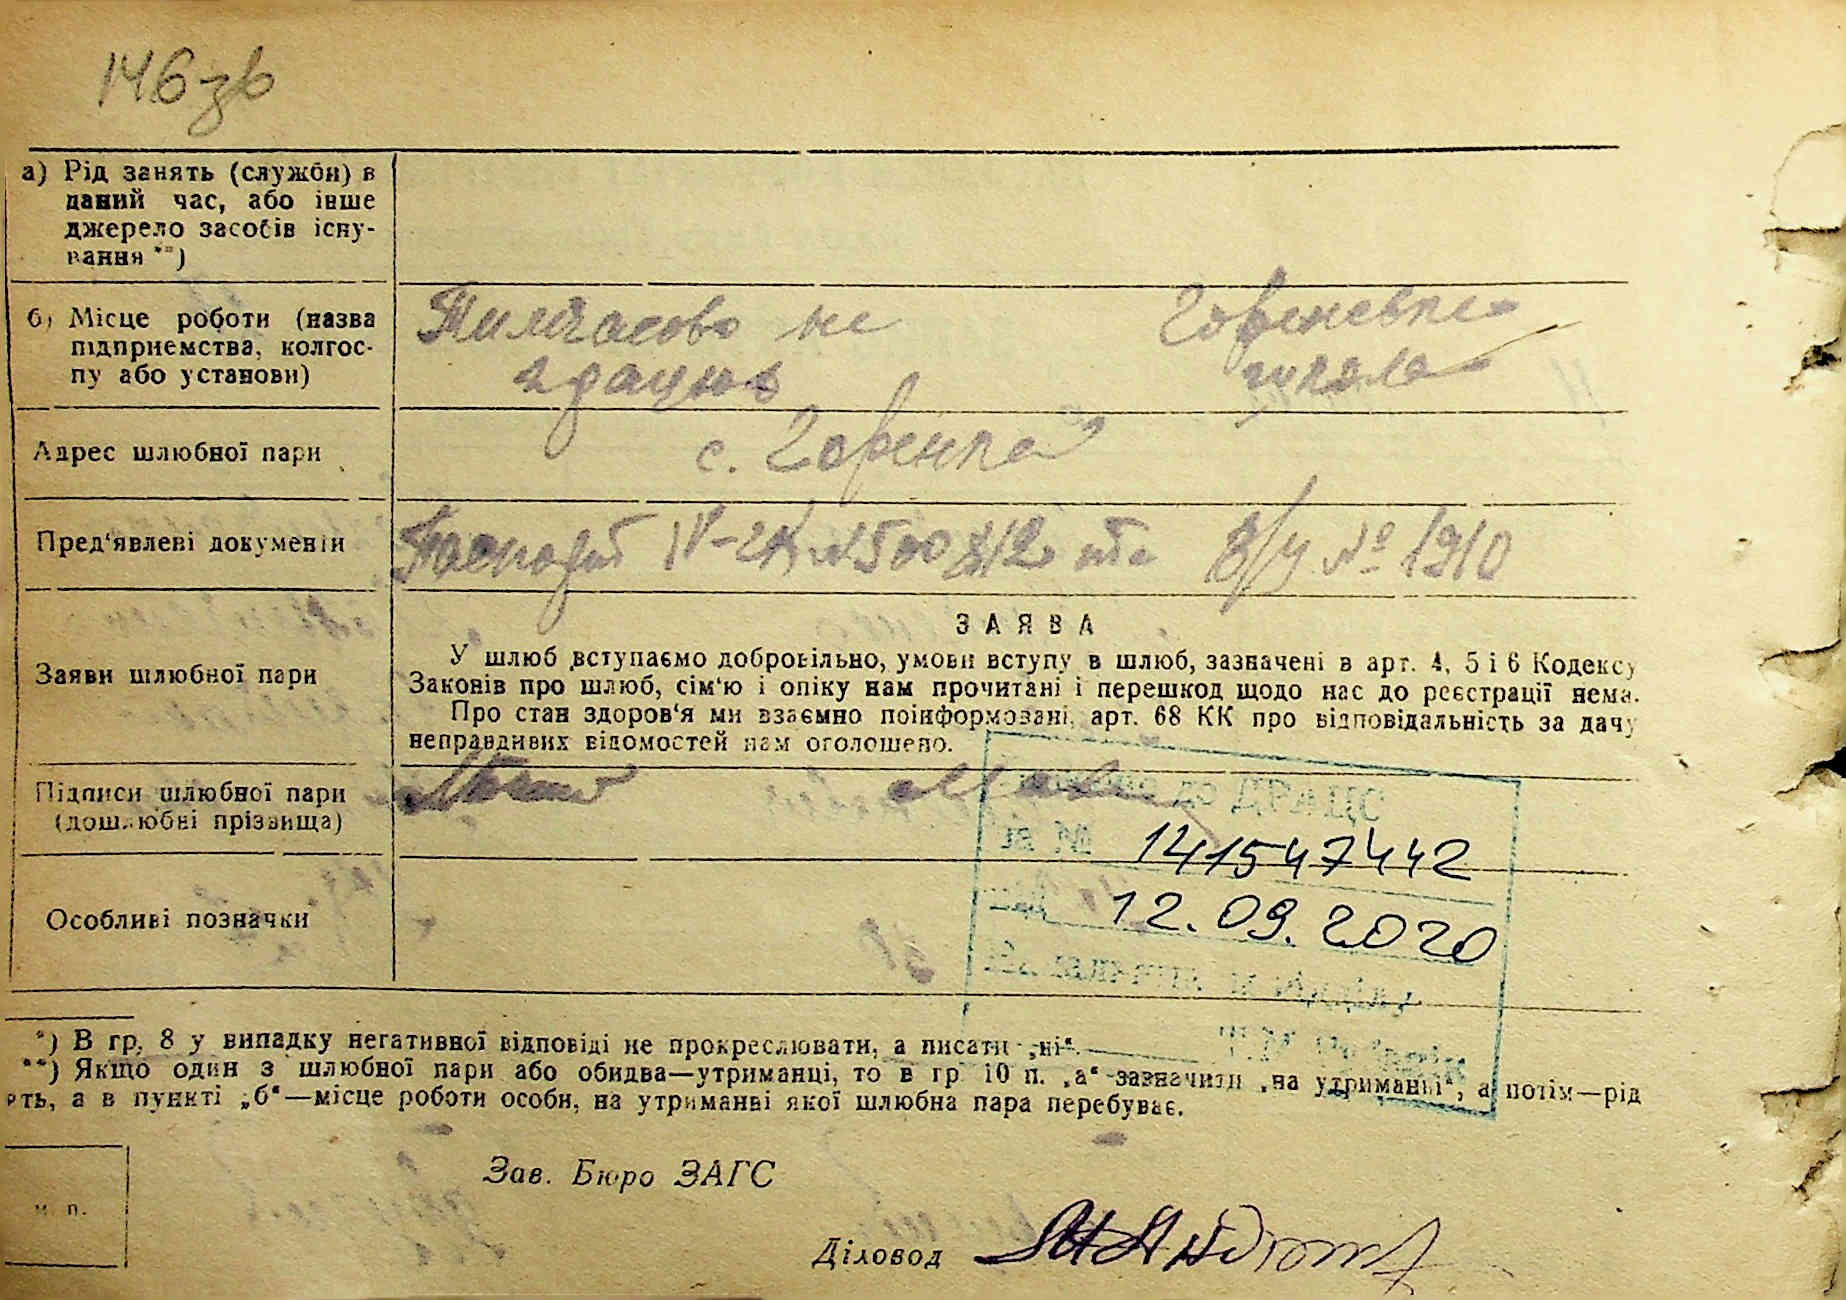 146 зв
а) Рід занять (служби) в
даний час, або інше
джерело засобів існу-
вання **)
б) Місце роботи (назва
підприємства, колгос-
пу або установи)
Тимчасово не
працює
Горенська
школа
Адрес шлюбної пари
с. Горенка
Пред'явлені документи
Паспорт IV-2К №500812 та В/у № 1910
ЗАЯВА
Заяви шлюбної пари
У шлюб вступаємо добровільно, умови вступу в шлюб, зазначені в арт. 4, 5 і 6 Кодексу
Законів про шлюб, сім'ю і опіку нам прочитані і перешкод щодо нас до реєстрації нема.
Про стан здоров'я ми взаємно поінформовані, арт. 68 КК про відповідальність за дачу
неправдивих відомостей нам оголошено.
Підписи шлюбної пари
(дошлюбні прізвища)
141547442
12.09.2020
Особливі позначки
*) В гр. 8 у випадку негативної відповіді не прокреслювати, а писати „ні“.
**) Якщо один з шлюбної пари або обидва—утриманці, то в гр 10 п. „а“ зазначити „на утриманні“, а потім—рід
ять, а в пункті „б“—місце роботи особи, на утриманні якої шлюбна пара перебуває.
Зав. Бюро ЗАГС
м. п.
Діловод